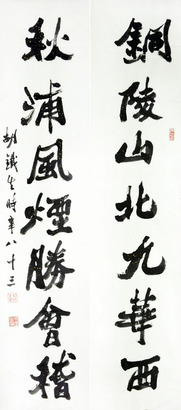 銅陵山北九華西
秋浦風煙勝會稽
胡鐵生時年八十三